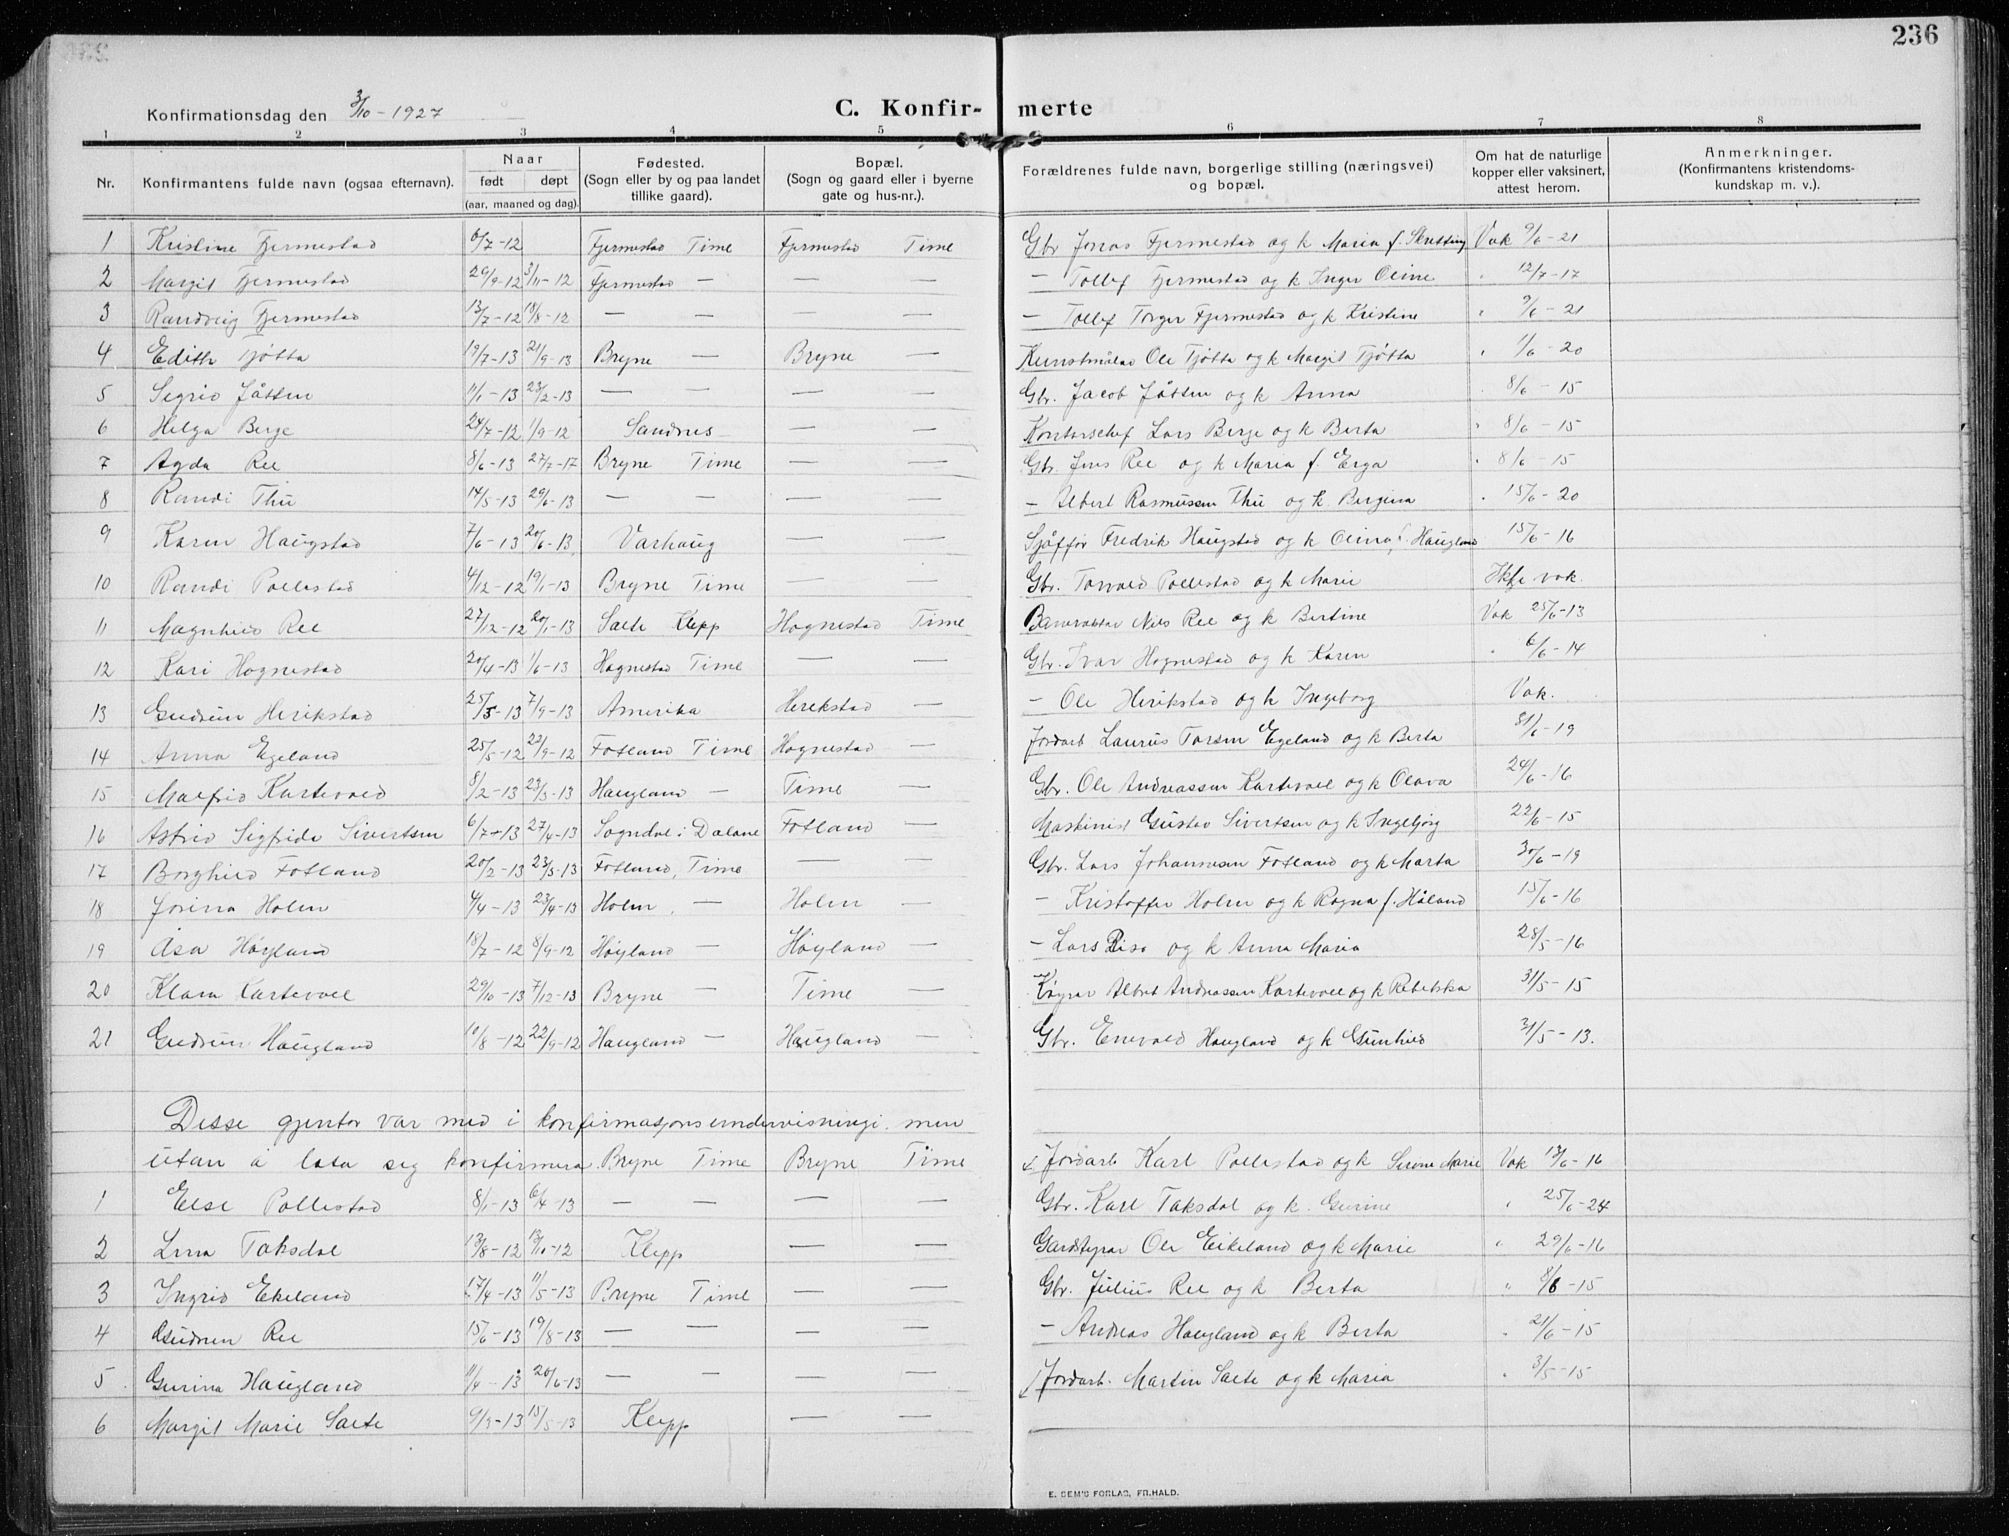 236
Konfirmationsdag den 3/10 - 1927
C. Konfir- merte
1 2 3 4 5 6 7 8
Nr.
Konfirmantens fulde navn (ogsaa efternavn).
Naar
født døpt
(aar, maaned og dag).
Fødested.
(Sogn eller by og paa landet
tillike gaard).
Bopæl.
(Sogn og gaard eller i byerne
gate og hus-nr.).
Forældrenes fulde navn, borgerlige stilling (næringsvei)
og bopæl.
Om hat de naturlige
kopper eller vaksinert,
attest herom.
Anmerkninger.
(Konfirmantens kristendoms-
kundskap m. v.).
1 Kristine Fjermestad 6/7-12 Fjermestad Time Fjermestad Time Gbr Jonas Fjermestad og k Maria f. Skretting Vak 9/6-21
2 Margit Fjermestad 29/9-12 3/11-12 Fjermestad — — — — Tollef Fjermestad og k Inger Oline " 12/7-17
3 Randveig Fjermestad 13/7-12 18/8-12 — — — — — Tollef Torger Fjermestad og k Kristine " 9/6-21
4 Edith Tjøtta 19/7-13 21/9-13 Bryne — Bryne — Kunstmålar Ole Tjøtta og k Margit Tjøtta " 1/6-20
5 Sigrid Jåtten 11/1-13 23/2-13 — — — — Gbr. Jacob Jåtten og k Anna " 8/6-15
6 Helga Berge 24/7-12 1/9-12 Sandnes — — Kontorschef Lars Berge og k Berta " 8/6-15
7 Agda Ree 8/6-13 27/7-17 Bryne Time — — Gbr. Jens Ree og k Maria f. Erga " 8/6-15
8 Randi Thu 14/5-13 29/6-13 — — — — — Albert Rasmussen Thu og k Bergina " 15/6-20
9 Karen Haugstad 7/6-13 20/6-13 Varhaug — — Sjåffør Fredrik Haugstad og k Olina f. Haugland 15/6-16
10 Randi Pollestad 4/12-12 19/1-13 Bryne Time — — Gbr. Torvald Pollestad og k Marie Ikkje vak.
11 Magnhild Ree 27/12-12 20/1-13 Saete Klepp Hognestad Time Banevaktar Nils Ree og k Bertine Vak 25/6-13
12 Kari Hognestad 20/4-13 1/6-13 Hognestad Time — — Gbr. Ivar Hognestad og k Karen " 6/6-14
13 Gudrun Herikstad 25/5-13 7/9-13 Amerika Herikstad — — Ole Herikstad og k Ingeborg Vak.
14 Anna Egeland 25/5-12 22/9-12 Fotland Time Hognestad — Jordarb Laurus Torsen Egeland og k Berta 31/6-19
15 Malfrid Kartevold 8/2-13 23/3-13 Haugland — Time — Gbr. Ole Andreassen Kartevoll og k Olava 24/6-16
16 Astrid Sigfride Sivertsen 6/7-13 27/4-13 Sogndal i Dalane Fotland — Maskinist Gustav Sivertsen og k Ingebjørg 22/6-15
17 Borghild Fotland 20/2-13 23/3-13 Fotland, Time — — Gbr. Lars Johannesen Fotland og k Marta 30/6-19
18 Jorina Holm 4/4-13 23/4-13 Holm — Holm — — Kristoffer Holm og k Ragna f. Håland 15/6-16
19 Åsa Høyland 18/7-12 8/9-12 Høyland — Høyland — — Lars Risa og k Anna Maria 28/5-16
20 Klara Kartevoll 29/10-13 7/12-13 Bryne — Time — Køyrar Albert Andreassen Kartevoll og k Rebekka 31/5-15
21 Gudrun Haugland 10/8-12 22/9-12 Haugland — Haugland — Gbr. Enevald Haugland og k Gunhild 31/5-13.
Disse gjentor var med i konfirmasjonsundervisningi, men
utan å lata seg konfirmera. Bryne Time Bryne Time Jordarb Karl Pollestad og k Serene Marie Vak 13/6-16
1 Else Pollestad 8/1-13 6/4-13 — — — — Gbr. Karl Taksdal og k. Gurine " 25/6-24
2 Lina Taksdal 13/8-12 13/10-12 Klepp — — Gardstyrar Ole Eikeland og k Marie " 29/6-16
3 Ingrid Ekeland 17/4-13 11/5-13 Bryne Time — — Gbr. Julius Ree og k Berta " 8/6-15
4 Gudrun Ree 15/6-13 19/8-13 — — — — — Andreas Haugland og k Berta " 21/6-15
5 Gurina Haugland 11/4-13 20/6-13 — — — — Jordarb. Martin Saete og k Maria " 3/5-15
6 Margit Marie Saete 9/3-13 15/5-13 Klepp — —
E. SEM'S FORLAG, FR.HALD.